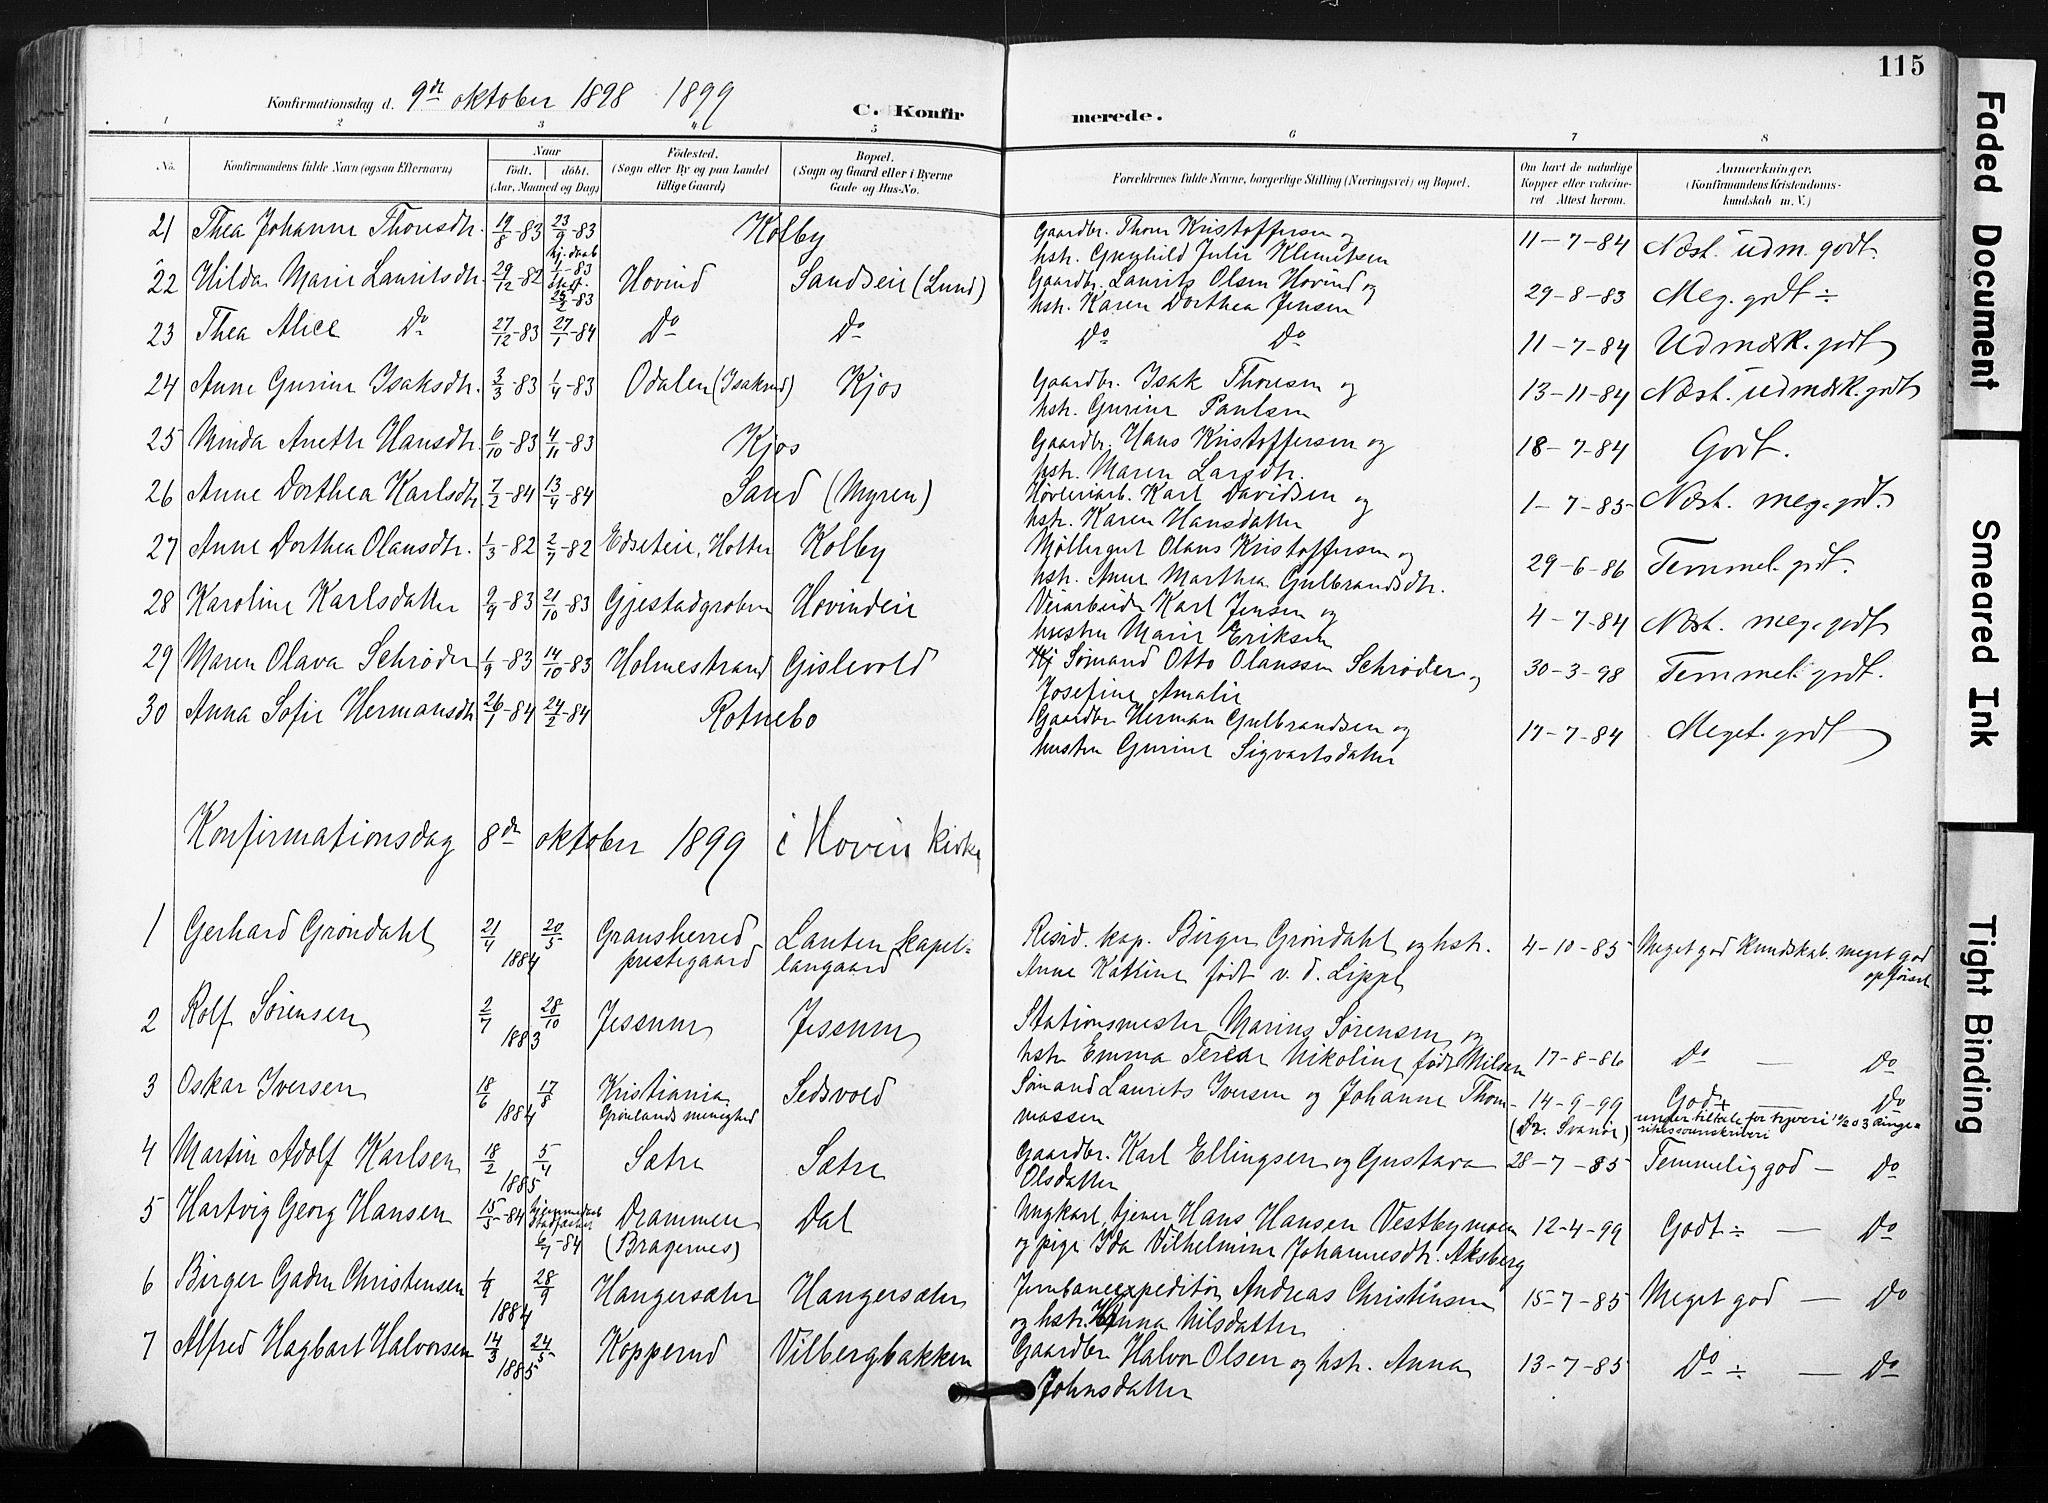 115
Konfirmationsdag d. 9de oktober 1898 1899
C. Konfirmerede.
1 2 3 4 5 6 7 8
No. Konfirmandens fulde Navn (ogsaa Efternavn) Naar født. døbt. (Aar, Maaned og Dag) Fødested. (Sogn eller By og paa Landet tillige Gaard) Bopæl. (Sogn og Gaard eller i Byerne Gade og Hus-No. Forældrenes fulde Navne, borgerlige Stilling (Næringsvei) og Bopæl. Om havt de naturlige Kopper eller vaccineret Attest herom. Anmærkninger. (Konfirmandens Kristendomskundskab m. V.)
21 Thea Johanne Thoresdtr. 19/8-83 23/9-83 Kolby Gaardbr. Thore Kristoffersen og hst. Gunhild Julie Klemetsen 11-7-84 Næst. udm. godt.
22 Hilda Marie Lauritsdtr. 29/12-82 hj.daab 1/1-83 26/2-83 Hovind Sandseie (Lund) Gaardbr. Laurits Olsen Hovind og hst. Karen Dorthea Jensen 29-8-83 Meg. godt ÷
23 Thea Alice Do 27/12-83 27/1-84 Do Do Do Do 11-7-84 Udmærk. godt
24 Anne Gurine Isaksdtr. 3/3-83 1/4-83 Odalen (Isakrud) Kjos Gaardbr. Isak Thoresen og hst. Gurine Paulsen 13-11-84 Næst. udmærk. godt
25 Minda Anette Hansdtr. 6/10-83 4/11-83 Kjos Gaardbr. Hans Kristoffersen og hst. Maren Larsdtr. 18-7-84 Godt.
26 Anne Dorthea Karlsdtr. 7/2-84 13/4-84 Sand (Myren) Høvleriarb. Karl Davidsen og hst. Karen Hansdatter 1-7-85 Næst. meg. godt.
27 Anne Dorthea Olansdtr. 1/3-82 2/7-82 Edseteie, Holter Kolby Møllergut Olaus Kristoffersen og hst. Anne Marthea Gulbrandsdtr. 29-6-86 Temmel. godt.
28 Karoline Karlsdatter 9/9-83 21/10-83 Gjestadgroben Hovindeie Veiarbeider Karl Jensen og hustru Marie Eriksen 4-7-84 Næst. meg. godt
29 Maren Olava Schrøder 1/9-83 14/10-83 Holmestrand Gislevold Sømand Otto Olanssen Schrøder og Josefine Amalie 30-3-98 Temmel. godt.
30 Anna Sofie Hermansdtr 26/1-84 24/2-84 Rotnebo Gaardbr Herman Gulbrandsen og hustru Gurine Sigvartsdatter 17-7-84 Meget. godt
Konfirmationsdag 8de oktober 1899 i Hovin kirke
1 Gerhard Grøndahl 21/4 20/5 1884 Gransherred prestegaard Lauten kapellangaard Resid. kap. Birger Grøndahl og hst. Anne Katrine født v. d. Lippe 4-10-85 Meget god kundskab. meget god opførsel
2 Rolf Sørensen 2/7 28/10 1883 Jessum Jessum Stationsmester Marius Sørensen og hst. Emma Nikoline født Nilsen 17-8-86 Do — Do
3 Oskar Iversen 18/6 17/8 1884 Kristiania Grønlands menighed Sedsvold Sømand Laurits Iversen og Johanne Thommassen 14-9-99 (Dr. Svanøe) God + — Do
under tiltale for tyveri
4 Martin Adolf Karlsen 18/2 5/4 1885 Sætre Sætre Gaardbr. Karl Ellingsen og Gustava Olsdatter 28-7-85 Temmelig god — Do
5 Hartvig Georg Hansen 15/5-84 hjemmedaab Stadfæstet 6/7-84 Drammen (Bragernes) Dal Ungkarl, tjener Hans Hansen Vestbymoen og pige Ida Vilhelmine Johannesdtr. Aksberg 12-4-99 Godt ÷ — Do
6 Birger Gaden Christensen 1/9 28/9 1884 Hangersæter Hangersæter Jernbaneexpeditør Andreas Christensen og hst. Anna Nilsdatter 15-7-85 Meget god — Do
7 Alfred Hagbart Halvorsen 14/3 24/5 1885 Kopperud Vilbergbakken Gaardbr Halvor Olsen og hst. Anna Johnsdatter 13-7-85 Do ÷ — Do
Faded Document
Smeared Ink
Tight Binding